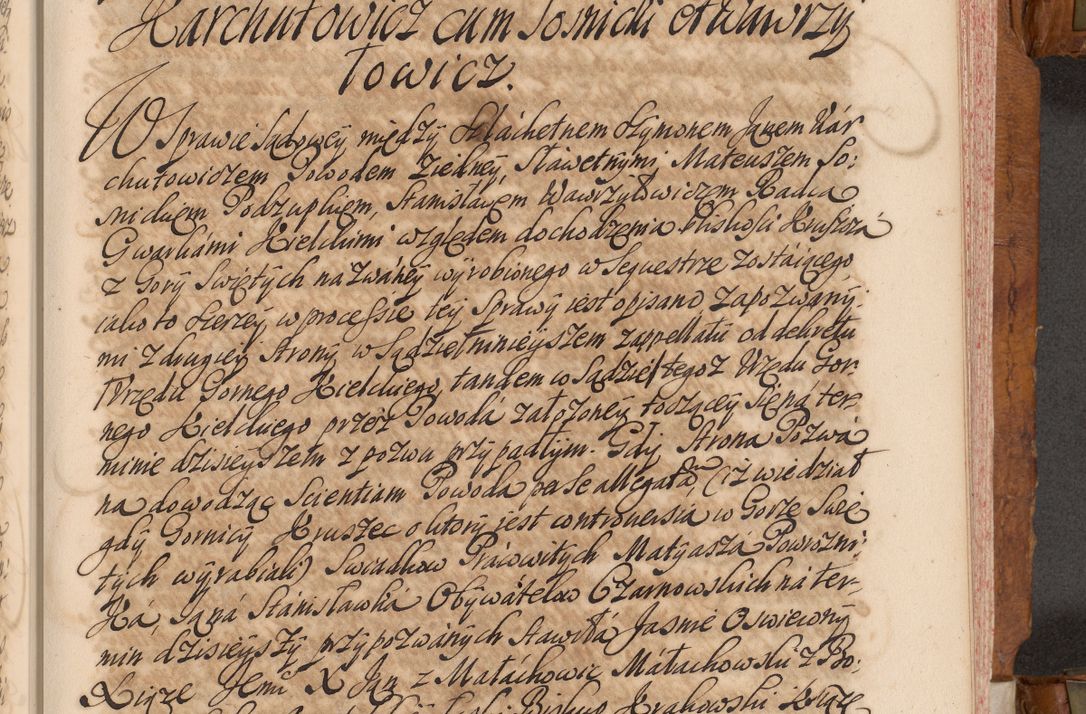 Karchutowicz cum Sosnicki et Wawrzy
towicz.
W Sprawie Sądowey między Szlachetnem Szymonem Janem Kar
chutowiczem Powodem z iedney, Sławetnymi Mateuszem So:
snickiem Podzupkiem, Stanisławem Wawrzytowiczem Radcą
Gwarkami Kieleckimi względem dochodzenia bliskości Kruszcza
z Gory Swiętych nazwaney wyrobionego w Sequestrze zostaiącego
iako to szerzey w processie tey Sprawy iest opisano, zapozwany
mi z drugiey strony, w Sądzie ninieyszem zappellatu od dekretu
Urzędu Gornego Kieleckiego, tandem w Sądzie tegoz Urzędu Gor
nego Kieleckiego przez Powoda załozoney toczącey się na ter-
minie dzisieyszem z pozwu przypadłym. Gdy strona Pozwa
na dowodząc Scientiam Powoda per se allegata, (iz wiedział
gdy Gornicy Kruszec o ktory iest controversia w Gorze Swię
tych wyrabiali) Swiadkow Pracowitych Matyasza Powrozni
ka, Jana Stanisławka Obywatelow Czarnowskich na ter-
min dzisieyszy przypozwanych stawiła Jasnie Oswiecony
Xiąze Jmć X Jan z Małachowic Małachowski z Bo:
Biskup Krakowski Xiąze